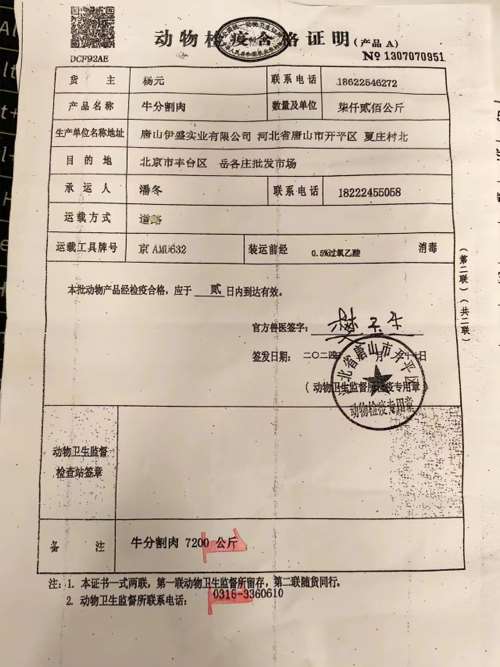 动物检疫合格证明(产品 A)
DCF92AE
№ 1307070951
货 主 杨元 联系电话 18622546272
产品名称 牛分割肉 数量及单位 柒仟贰佰公斤
生产单位名称地址 唐山伊盛实业有限公司 河北省唐山市开平区 夏庄村北
目 的 地 北京市丰台区 岳各庄批发市场
承 运 人 潘冬 联系电话 18222455058
运载方式 道路
运载工具牌号 京 AMU632 装运前经 0.5%过氧乙酸 消毒
(第二联)(共二联)
本批动物产品经检疫合格，应于 贰 日内到达有效。
官方兽医签字：
签发日期： 二〇二
(动物卫生监督所检疫专用章)
河北省唐山市开平区
动物检疫专用章
动物卫生监督
检查站签章
备 注 牛分割肉 7200 公斤
注：1. 本证书一式两联，第一联动物卫生监督所留存，第二联随货同行。
2. 动物卫生监督所联系电话： 0315-3360610